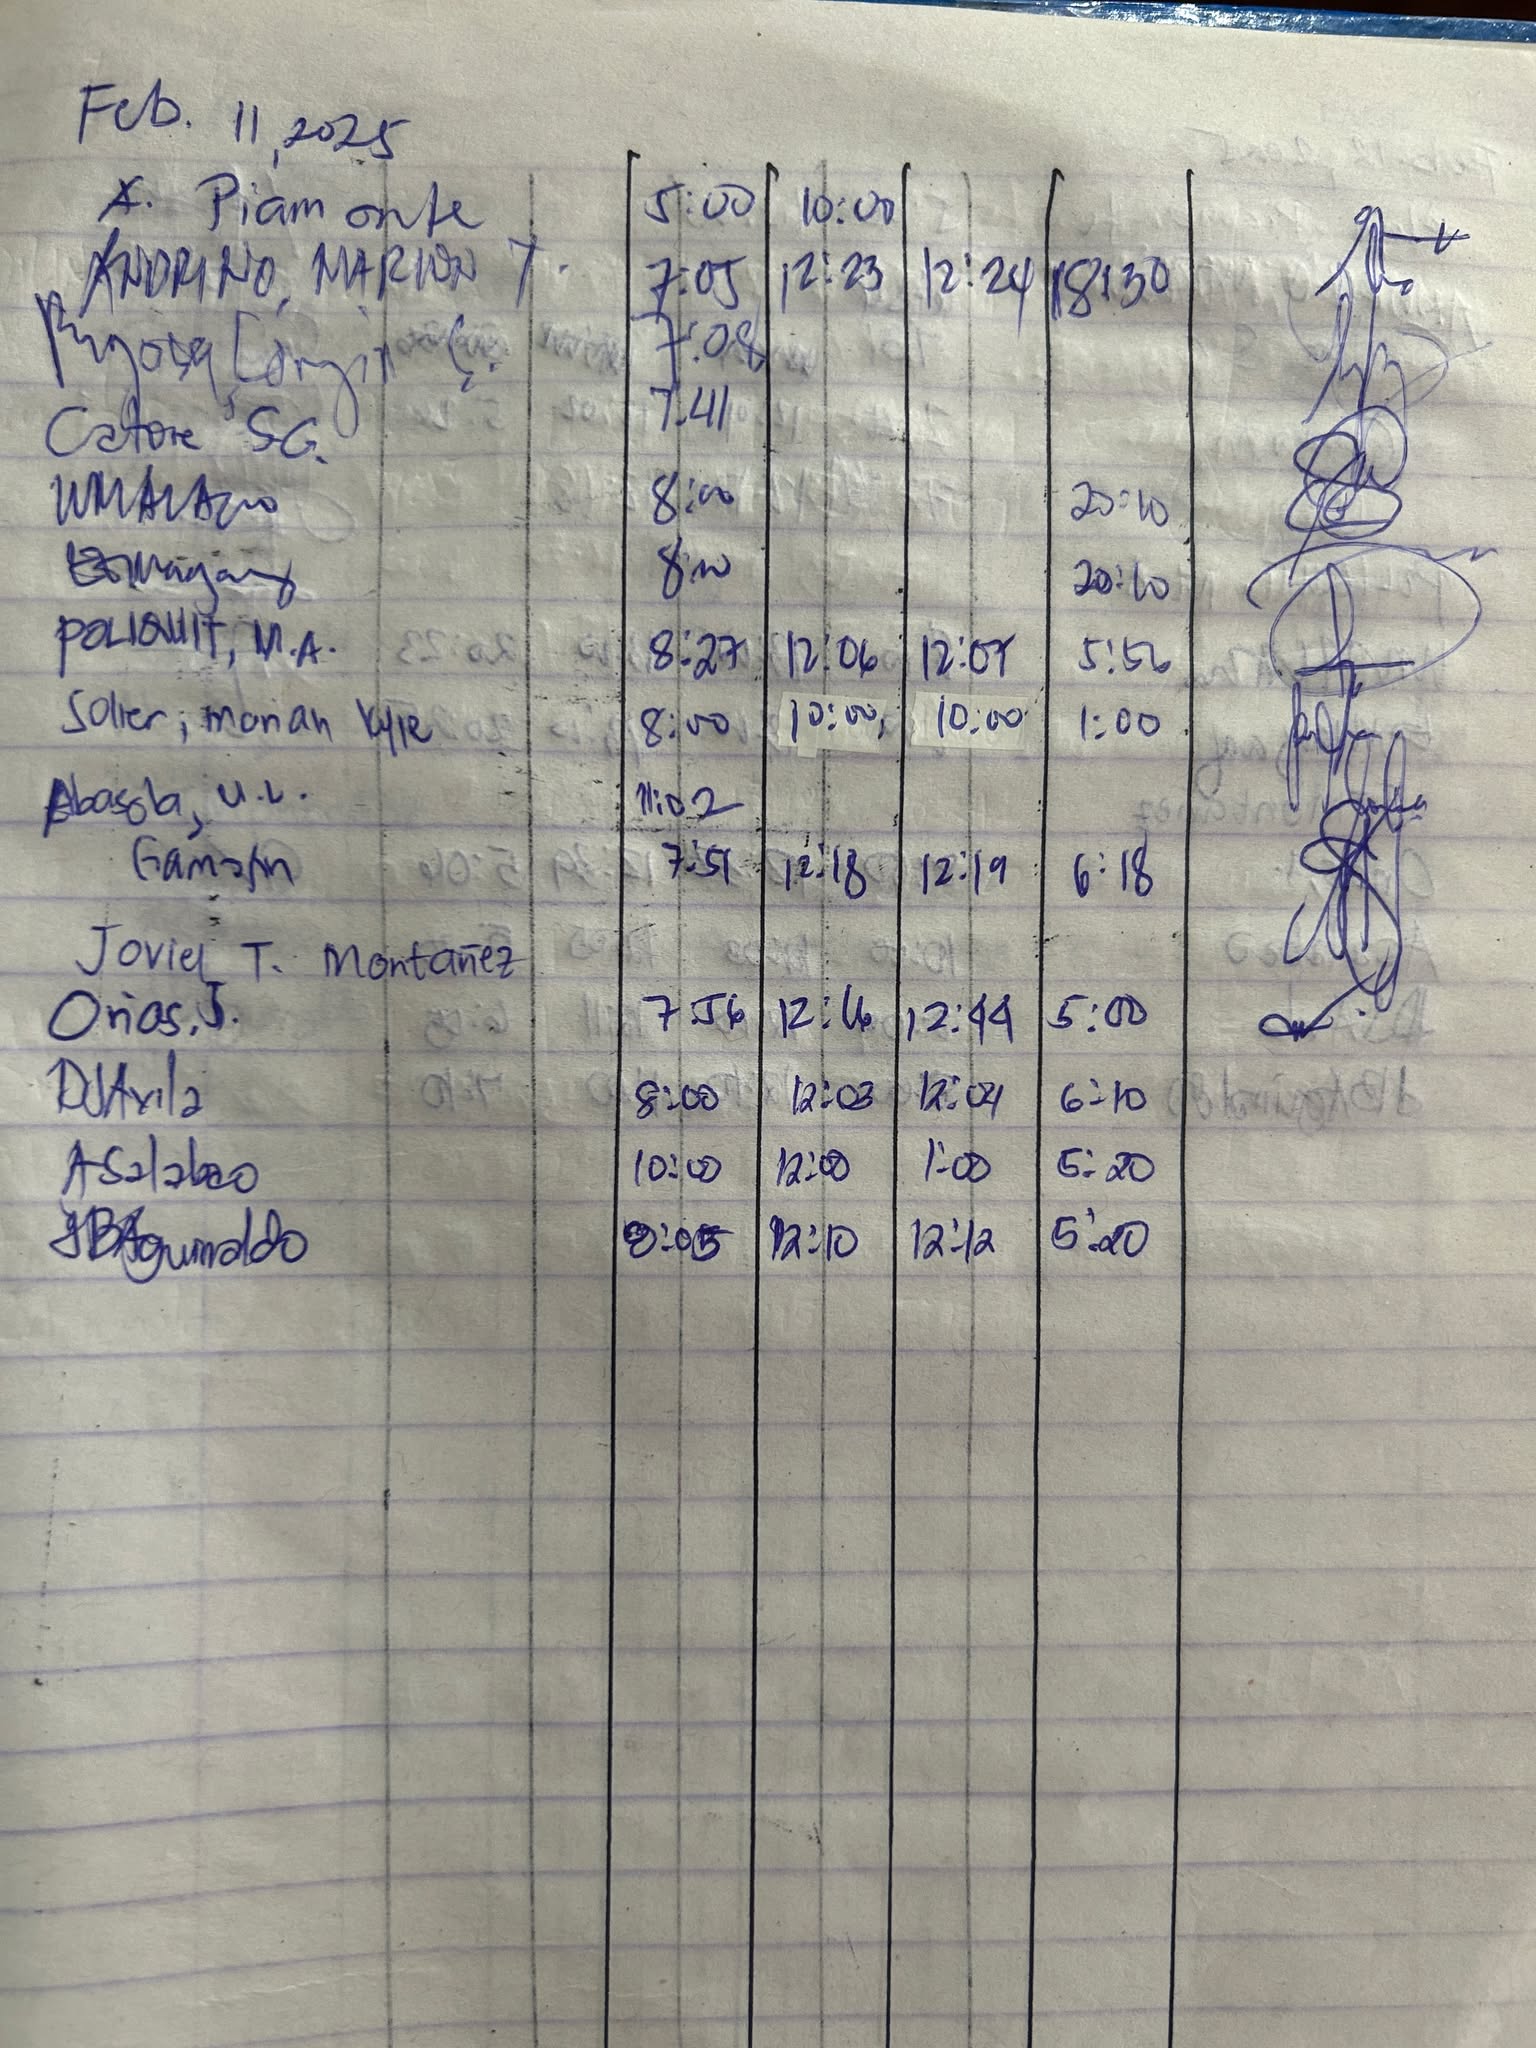 Feb. 11, 2025
A. Piamonte 5:00 10:00
ANDRINO, MARION T. 7:05 12:23 12:24 18:30
7:08
Catore SG. 7:41
8:00 20:10
8:00 20:10
POLIQUIT, M.A. 8:27 12:06 12:07 5:56
Solier, marian kylie 8:00 10:00 10:00 1:00
Abasola, U.L. 11:02
Gamazin 7:51 12:18 12:19 6:18
Joviel T. Montañez
Orias, J. 7:56 12:16 12:44 5:00
DJAvila 8:00 12:03 12:04 6:10
ASalabao 10:00 12:00 1:00 5:20
JBAguinaldo 8:05 12:10 12:12 5:20